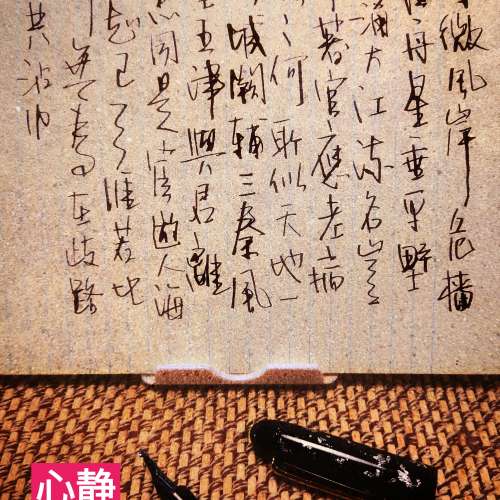 微風岸危檣
舟星垂平野
涌大江流名豈
著官應老病
何所似天地一
城闕輔三秦風
五津與君離
意同是宦遊人海
知己天涯若比
無為在歧路
共沾巾
心静